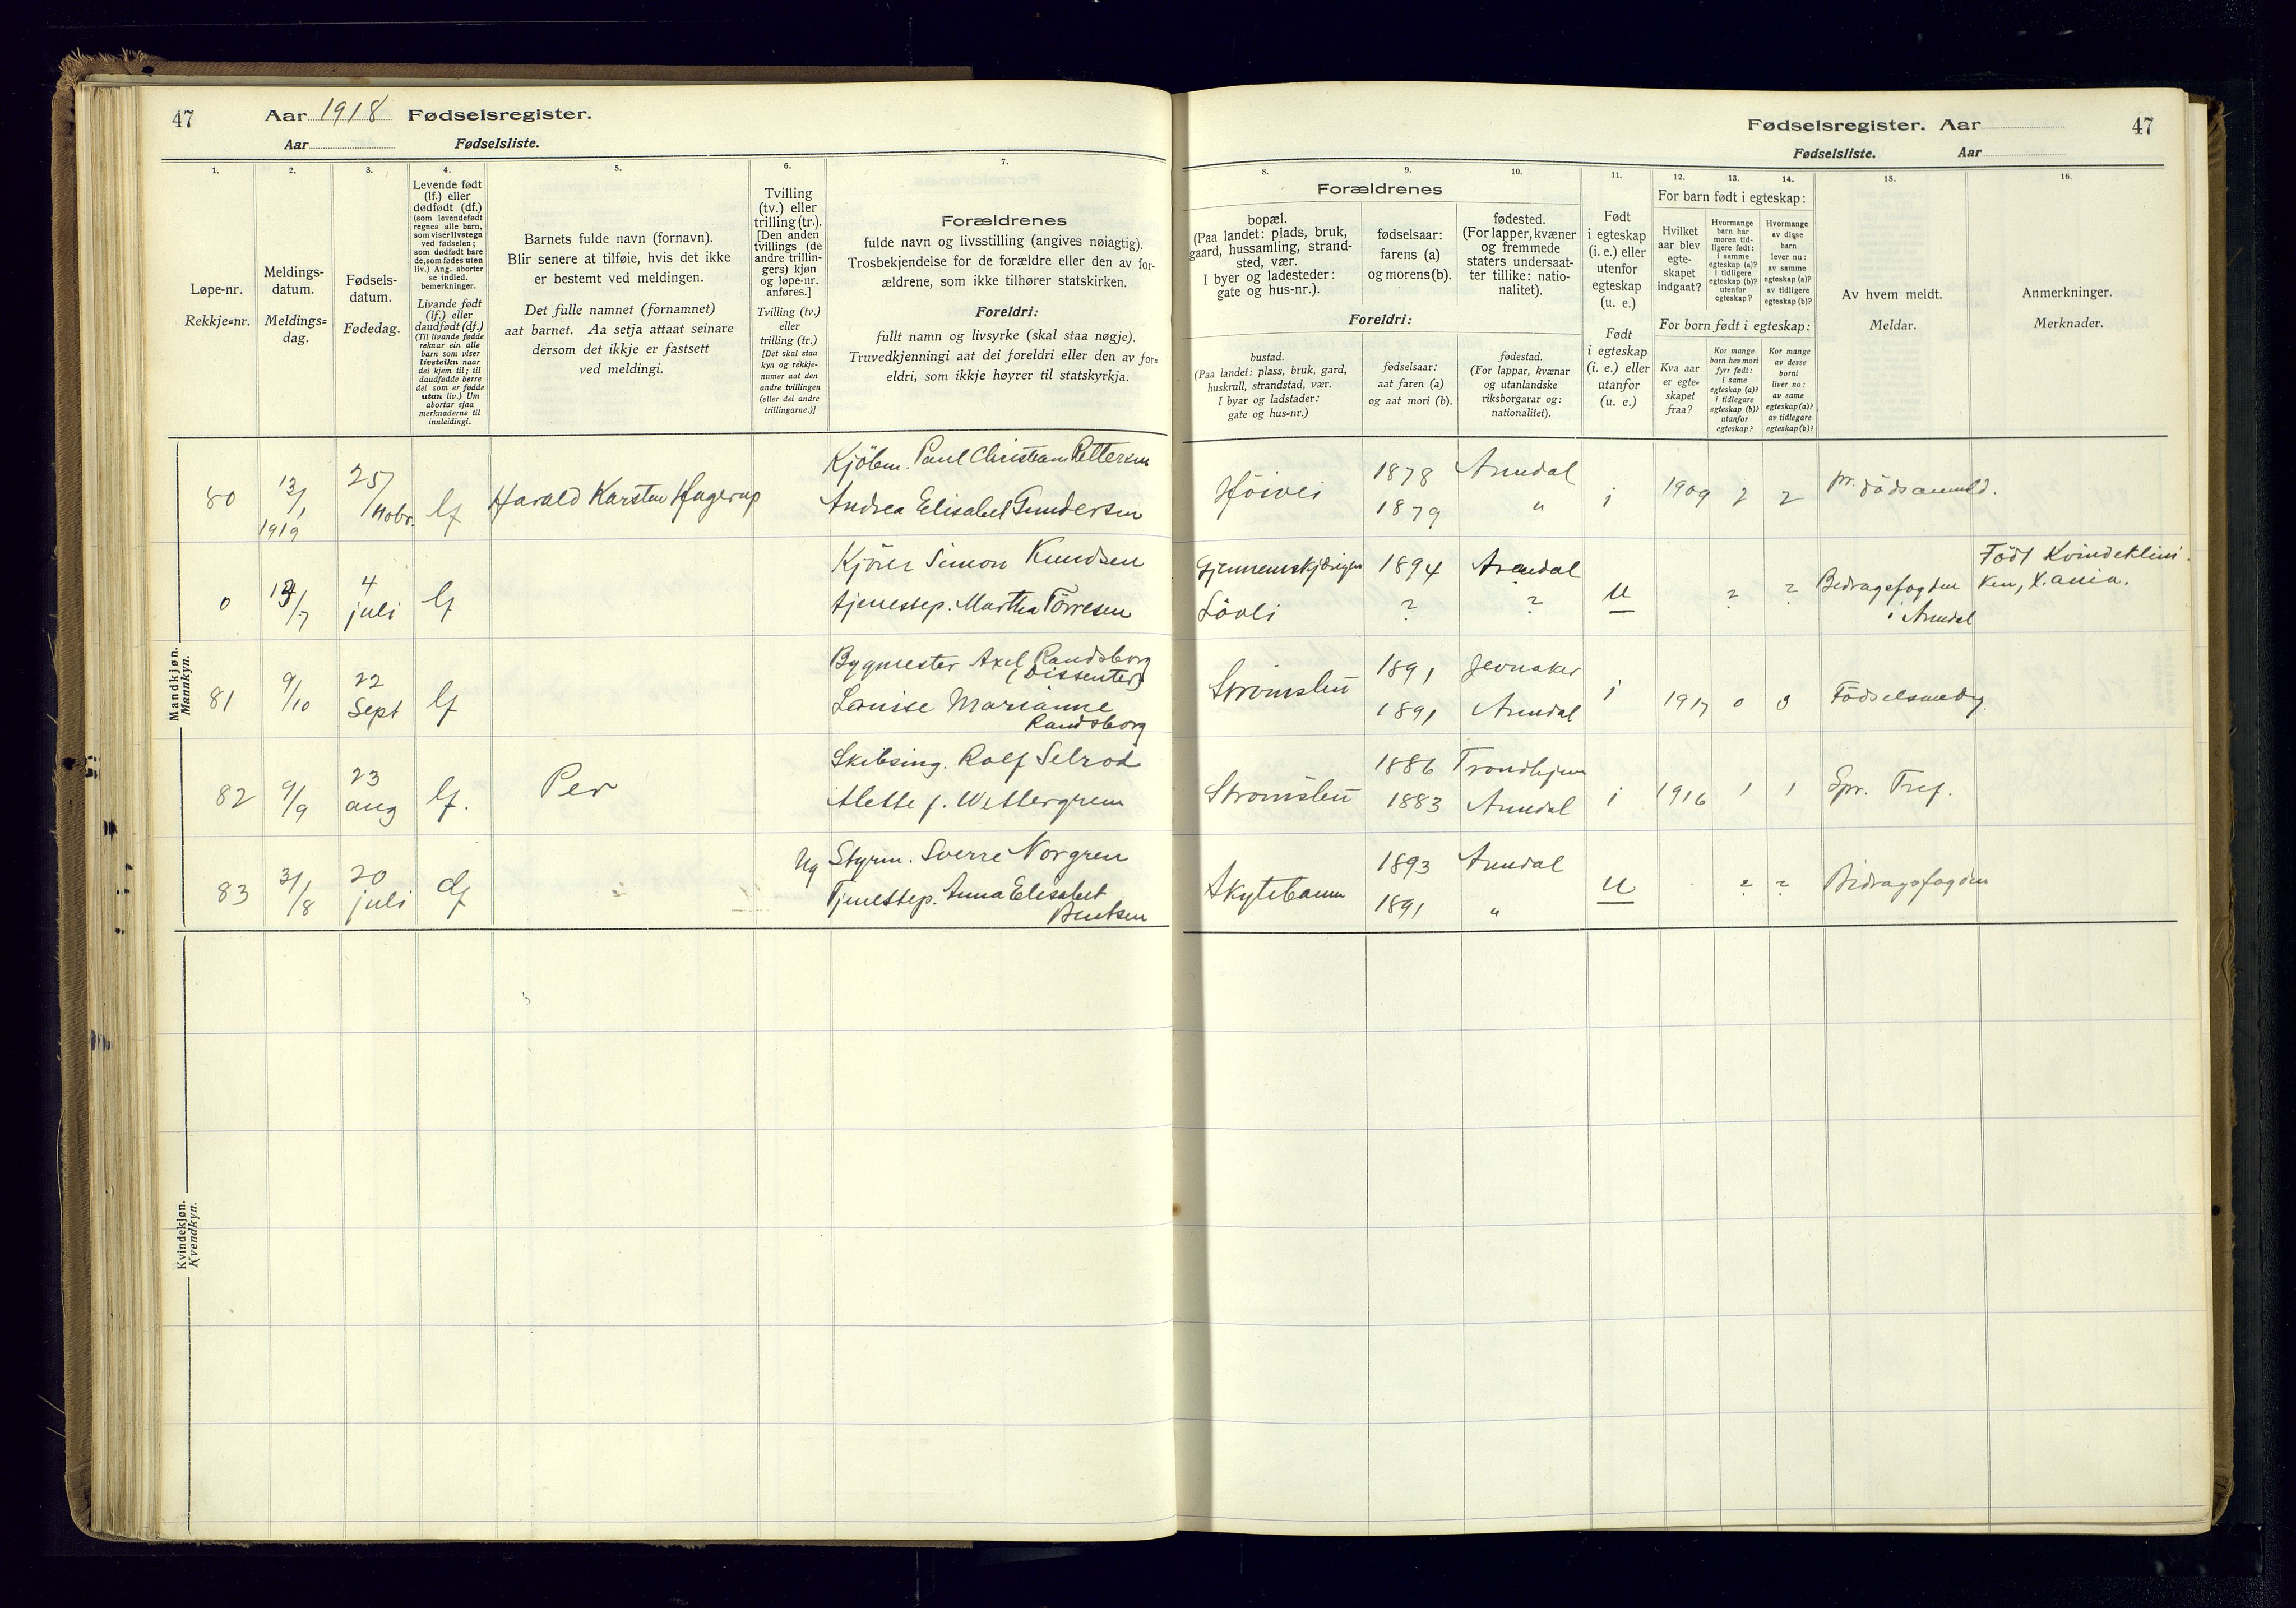 47 Aar 1918 Fødselsregister.
Aar Fødselsliste.
1. 2. 3. 4. 5. 6. 7.
Løpe-nr.
Rekkje=nr.
Meldings-
datum.
Meldings=
dag.
Fødsels-
datum.
Fødedag.
Levende født
(lf.) eller
dødfødt (df.)
(som levendefødt
regnes alle barn,
som viser livstegn
ved fødselen;
som dødfødt bare
de, som fødes uten
liv.) Ang. aborter
se indled.
bemerkninger.
Livande født
(lf.) eller
daudfødt (df.)
(Til livande fødde
reknar ein alle
barn som viser
livsteikn naar
dei kjem til; til
daudfødde berre
dei som er fødde
utan liv.) Um
abortar sjaa
merknaderne til
innleidingi.
Barnets fulde navn (fornavn).
Blir senere at tilføie, hvis det ikke
er bestemt ved meldingen.
Det fulle namnet (fornamnet)
aat barnet. Aa setja attaat seinare
dersom det ikkje er fastsett
ved meldingi.
Tvilling
(tv.) eller
trilling (tr.).
[Den anden
tvillings (de
andre trillin-
gers) kjøn
og løpe-nr.
anføres.]
Tvilling (tv.)
eller
trilling (tr.)
[Det skal staa
kyn og rekkje-
numer aat den
andre tvillingen
(eller dei andre
trillingarne.)]
Forældrenes
fulde navn og livsstilling (angives nøiagtig).
Trosbekjendelse for de forældre eller den av for-
ældrene, som ikke tilhører statskirken.
Foreldri:
fullt namn og livsyrke (skal staa nøgje).
Truvedkjenningi aat dei foreldri eller den av for=
eldri, som ikkje høyrer til statskyrkja.
Fødselsregister. Aar 47
Fødselsliste. Aar
8. 9. 10. 11. 12. 13. 14. 15. 16.
Forældrenes
bopæl.
(Paa landet: plads, bruk,
gaard, hussamling, strand-
sted, vær.
I byer og ladesteder:
gate og hus-nr.).
fødselsaar:
farens (a)
og morens (b).
fødested.
(For lapper, kvæner
og fremmede
staters undersaat-
ter tillike: natio-
nalitet).
Foreldri:
bustad.
(Paa landet: plass, bruk, gard,
huskrull, strandstad, vær.
I byar og ladstader:
gate og hus=nr.)
fødselsaar:
aat faren (a)
og aat mori (b).
fødestad.
(For lappar, kvænar
og utanlandske
riksborgarar og:
nationalitet).
Født
i egteskap
(i. e.) eller
utenfor
egteskap
(u. e.)
Født
i egteskap
(i. e.) eller
utanfor
(u. e.)
For barn født i egteskap:
Hvilket
aar blev
egte-
skapet
indgaat?
Hvormange
barn har
moren tid-
ligere født:
i samme
egteskap (a)?
i tidligere
egteskap (b)?
utenfor
egteskap?
Hvormange
av disse
barn
lever nu:
av samme
egteskap (a)?
av tidligere
egteskap (b)?
For born født i egteskap:
Kva aar
er egte=
skapet
fraa?
Kor mange
born hev mori
fyrr født:
i same
egteskap (a)?
i tidlegare
egteskap (b)?
utanfor
egteskap?
Kor mange
av desse
borni
liver no:
av same
egteskap (a)?
av tidlegare
egteskap (b)?
Av hvem meldt.
Meldar.
Anmerkninger.
Merknader.
Mandkjøn.
Mannkyn.
80 13/1 1919 25/Nobr. lf Harald Karsten Hagerup
Kjöbm. Paul Christian Pettersen
Andrea Elisabet Gundersen
Höivei 1878 Arendal i 1909 2 2
1879 "
0 /7 4 juli lf
Kjörer Simon Knudsen
tjenestep. Martha Törresen
1894 Arendal u ? ? Bedragsfogden i Arendal
Lövli ? ?
Födt Kvindeklini-
ken, X.ania.
81 9/10 22 Sept lf
Bygmester Axel Randsborg
(Dissenter)
Louise Marianne
Randsborg
Strömsbu 1891 Jevnaker i 1917 0 0
1891 Arendal
82 9/9 23 aug lf. Per
Skibsing. Rolf Selrod
Alette f. Wettergren
Strömsbu 1886 Trondhjem i 1916 1 1
1883 Arendal
83 31/8 20 juli df
Ug Styrm. Sverre Norgren
Tjenestep. Anna Elisabet
Bentsen
Skytebanen 1893 Arendal u ? ? Bidragsfogden
1891 "
Kvindekjøn.
Kvendkyn.